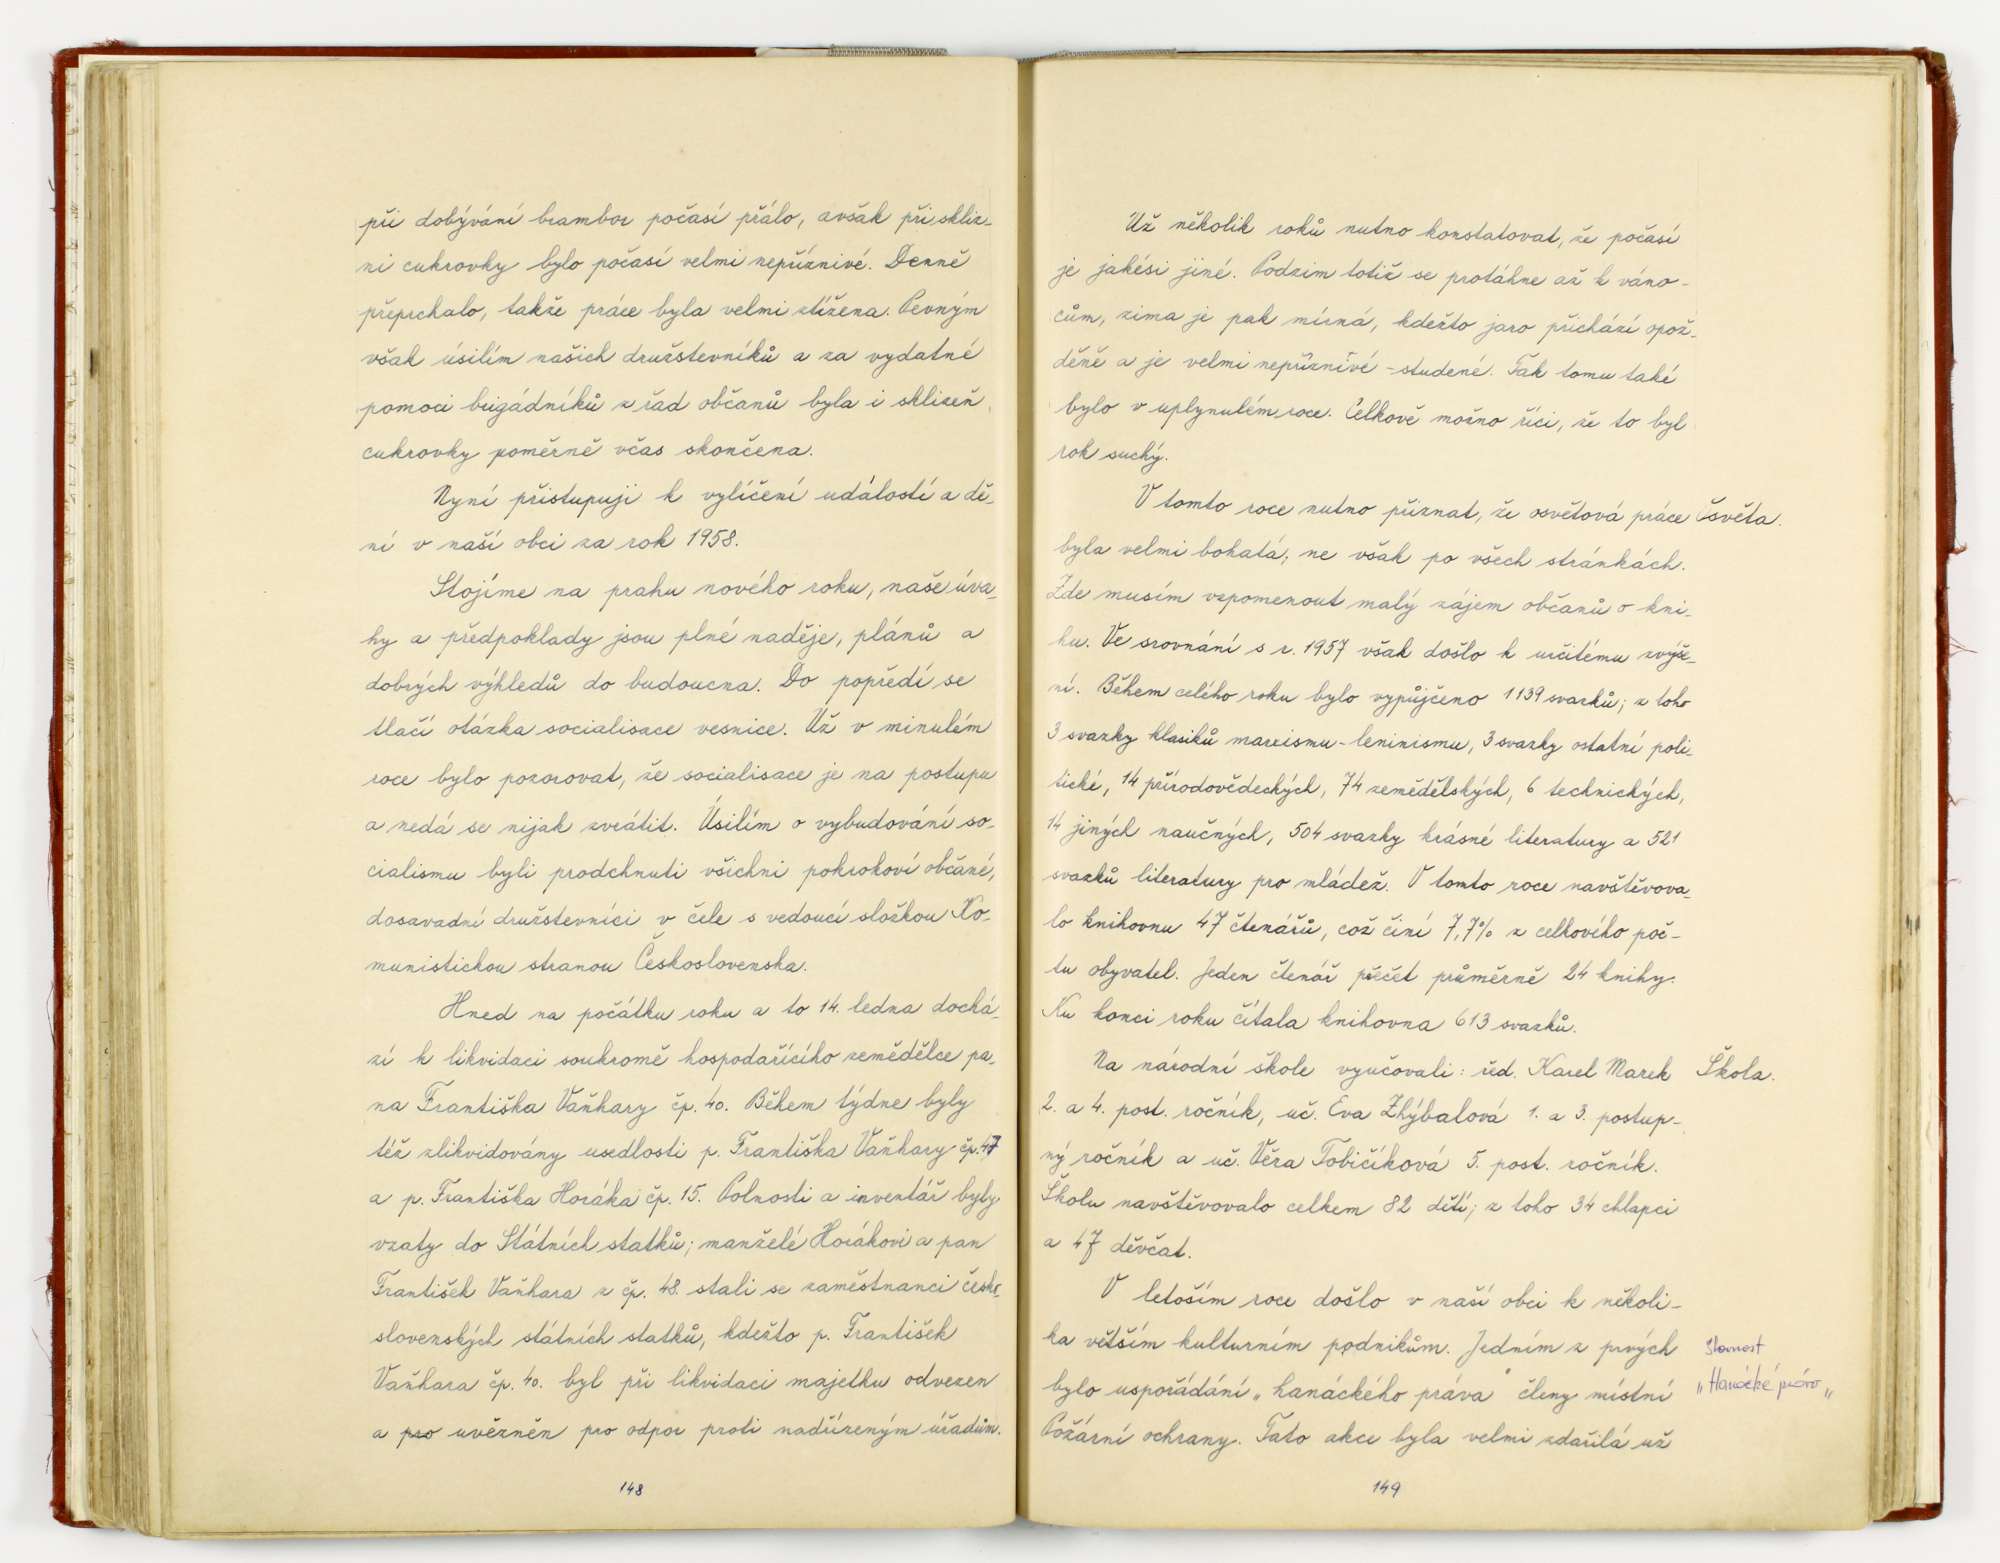 při dobývání brambor počasí přálo, avšak při skliz-
ni cukrovky bylo počasí velmi nepříznivé. Denně
přeprchalo, takže práce byla velmi ztížena. Pevným
však úsilím našich družstevníků a za vydatné
pomoci brigádníků z řad občanů byla i sklizeň
cukrovky poměrně včas skončena.
Nyní přistupuji k vylíčení událostí a dě-
ní v naší obci za rok 1958.
Stojíme na prahu nového roku, naše úva-
hy a předpoklady jsou plné naděje, plánů a
dobrých výhledů do budoucna. Do popředí se
tlačí otázka socialisace vesnice. Už v minulém
roce bylo pozorovat, že socialisace je na postupu
a nedá se nijak zvrátit. Úsilím o vybudování so-
cialismu byli prodchnuti všichni pokrokoví občané,
dosavadní družstevníci v čele s vedoucí složkou Ko-
munistickou stranou Československa.
Hned na počátku roku a to 14. ledna dochá-
zí k likvidaci soukromě hospodařícího zemědělce pa-
na Františka Vaňhary čp. 40. Během týdne byly
též zlikvidovány usedlosti p. Františka Vaňhary čp. 47
a p. Františka Horáka čp. 15. Polnosti a inventář byly
vzaty do Státních statků; manželé Horákovi a pan
František Vaňhara z čp. 48. stali se zaměstnanci česko-
slovenských státních statků, kdežto p. František
Vaňhara čp. 40. byl při likvidaci majetku odvezen
a pro uvězněn pro odpor proti nadřízeným úřadům.
148
Už několik roků nutno konstatovat, že počasí
je jakési jiné. Podzim totiž se protáhne až k váno-
cům, zima je pak mírná, kdežto jaro přichází opož-
děně a je velmi nepříznivé - studené. Tak tomu také
bylo v uplynulém roce. Celkově možno říci, že to byl
rok suchý.
V tomto roce nutno přiznat, že osvětová práce Osvěta.
byla velmi bohatá; ne však po všech stránkách.
Zde musím vzpomenout malý zájem občanů o kni-
hu. Ve srovnání s r. 1957 však došlo k určitému zvýše-
ní. Během celého roku bylo vypůjčeno 1139 svazků; z toho
3 svazky klasiků marxismu-leninismu, 3 svazky ostatní poli-
tické, 14 přírodovědeckých, 74 zemědělských, 6 technických,
14 jiných naučných, 504 svazky krásné literatury a 521
svazků literatury pro mládež. V tomto roce navštěvova-
lo knihovnu 47 čtenářů, což činí 7,7% z celkového poč-
tu obyvatel. Jeden čtenář přečet průměrně 24 knihy.
Ku konci roku čítala knihovna 613 svazků.
Na národní škole vyučovali: řed. Karel Marek Škola.
2. a 4. post. ročník, uč. Eva Zhýbalová 1. a 3. postup-
ný ročník a uč. Věra Tobičíková 5. post. ročník.
Školu navštěvovalo celkem 82 dětí; z toho 34 chlapci
a 47 děvčat.
V letoším roce došlo v naší obci k několi-
ka větším kulturním podnikům. Jedním z prvých Slavnost
bylo uspořádání „hanáckého práva" členy místní „Hanácké právo"
Požární ochrany. Tato akce byla velmi zdařilá už
149